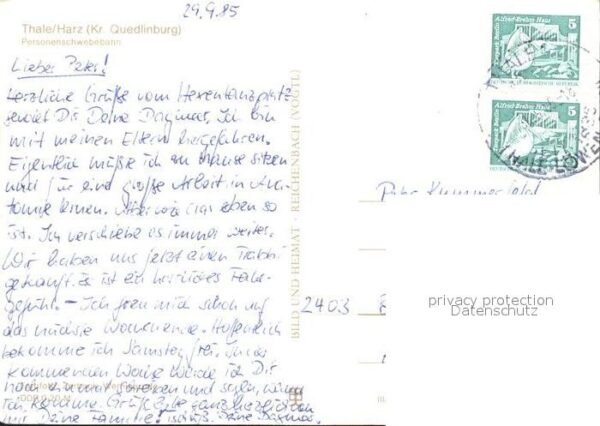 29.9.85
Thale/Harz (Kr. Quedlinburg)
Personenschwebebahn
Lieber Peter!
Herzliche Grüße vom Hexentanzplatz
sendet Dir Deine Dagmar. Ich bin
mit meinen Eltern hergefahren.
Eigentlich müßte ich zu Hause sitzen
und für eine große Arbeit in Ana-
tomie lernen. Aber wie das eben so
ist. Ich verschiebe es immer weiter.
Wir haben uns jetzt einen Trabbi
gekauft. Es ist ein herrliches Fahr-
gefühl. – Ich freu mich schon auf
das nächste Wochenende. Hoffentlich
bekomme ich Samstag frei. In der
kommenden Woche werde ich Dir
noch einmal schreiben und sagen, wann
ich komme. Grüße bitte ganz herzlich von
mir Deine Familie! Tschüß. Deine Dagmar.
BILD UND HEIMAT · REICHENBACH (VOGTL)
Alfred-Brehm Haus
Tierpark Berlin
5
Alfred-Brehm Haus
Tierpark Berlin
5
THALE
Peter Kummerfeld
2403
privacy protection
Datenschutz